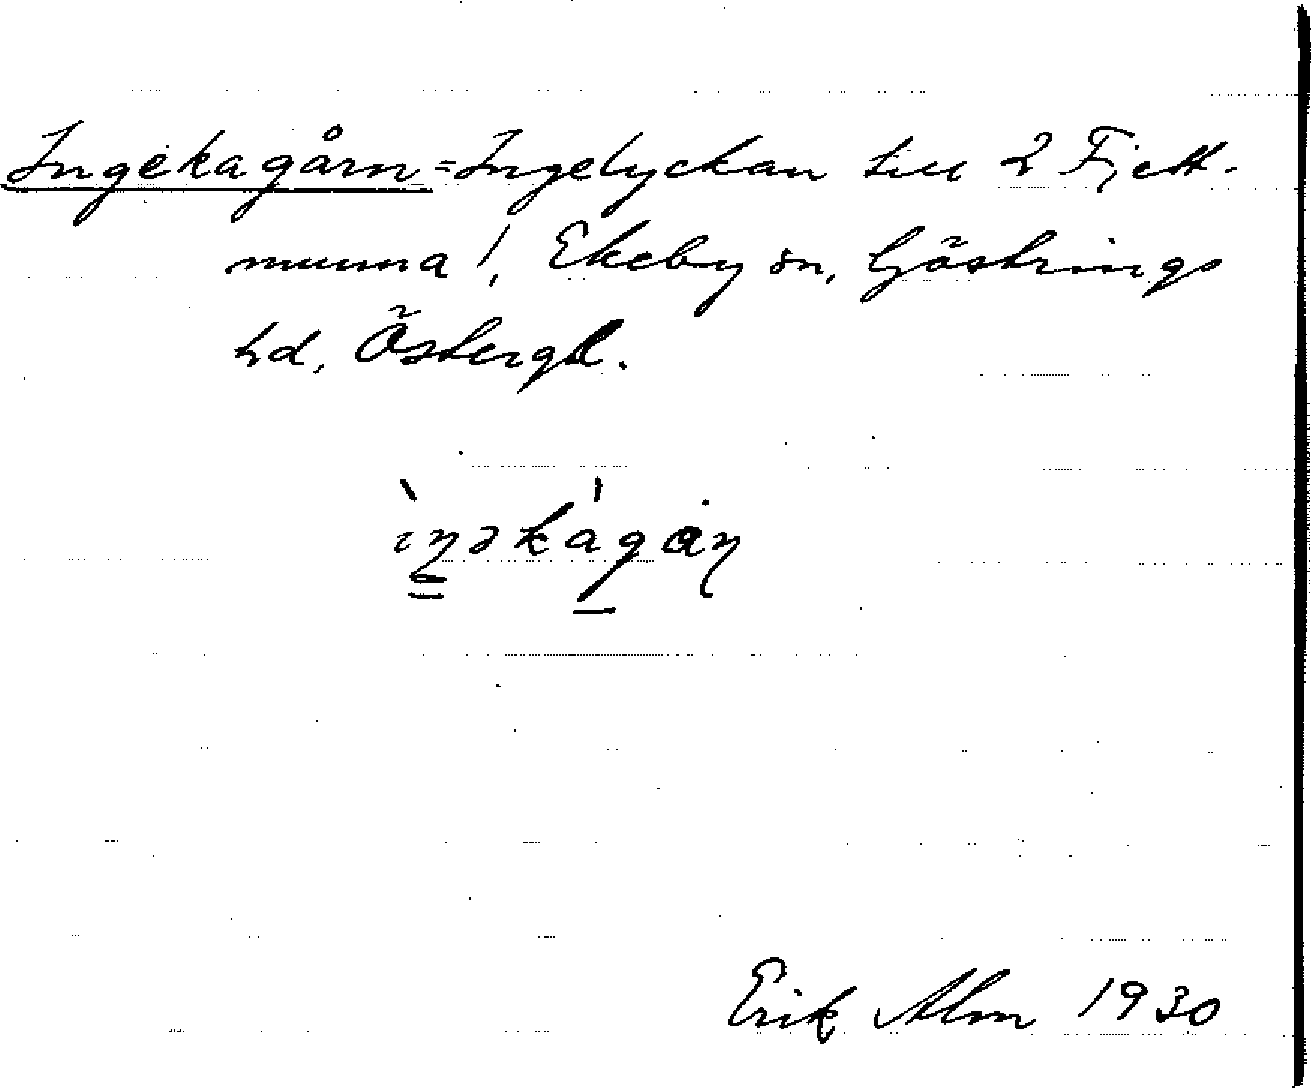 Ingekagårn = Ingelyckan till 2 Fjett-
munna !, Ekeby sn, Göstrings
hd, Östergl.
Erik Alm 1930